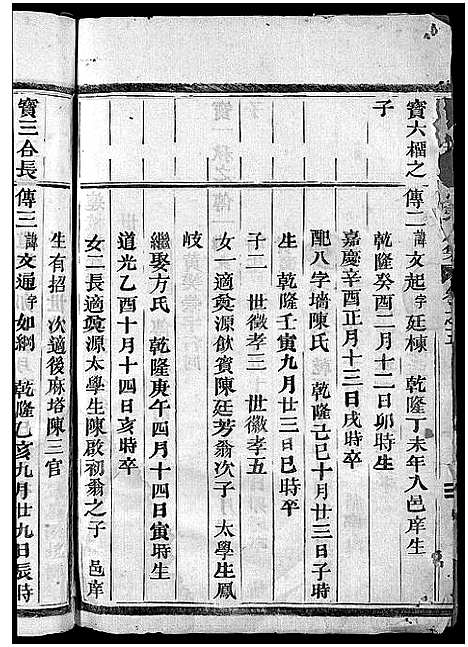 寶六榴之 傳二 諱文起字廷棟 乾隆丁未年入邑庠生
子 乾隆癸酉二月十二日卯時生
嘉慶辛酉正月十三日戌時卒
配八字墻陳氏 乾隆己巳十月廿三日子時
生 乾隆壬寅九月廿三日巳時卒
子二 世徽孝三 世徽孝五
女一適奠源飲賓陳廷芳翁次子 太學生鳳
岐
繼娶方氏 乾隆庚午四月十四日寅時生
道光乙酉十月十四日亥時卒
女二長適奠源太學生陳啟初翁之子 邑庠
生有招 次適後麻塔陳三官
寶三合長 傳三 諱文通字如綱 乾隆乙亥九月廿九日辰時